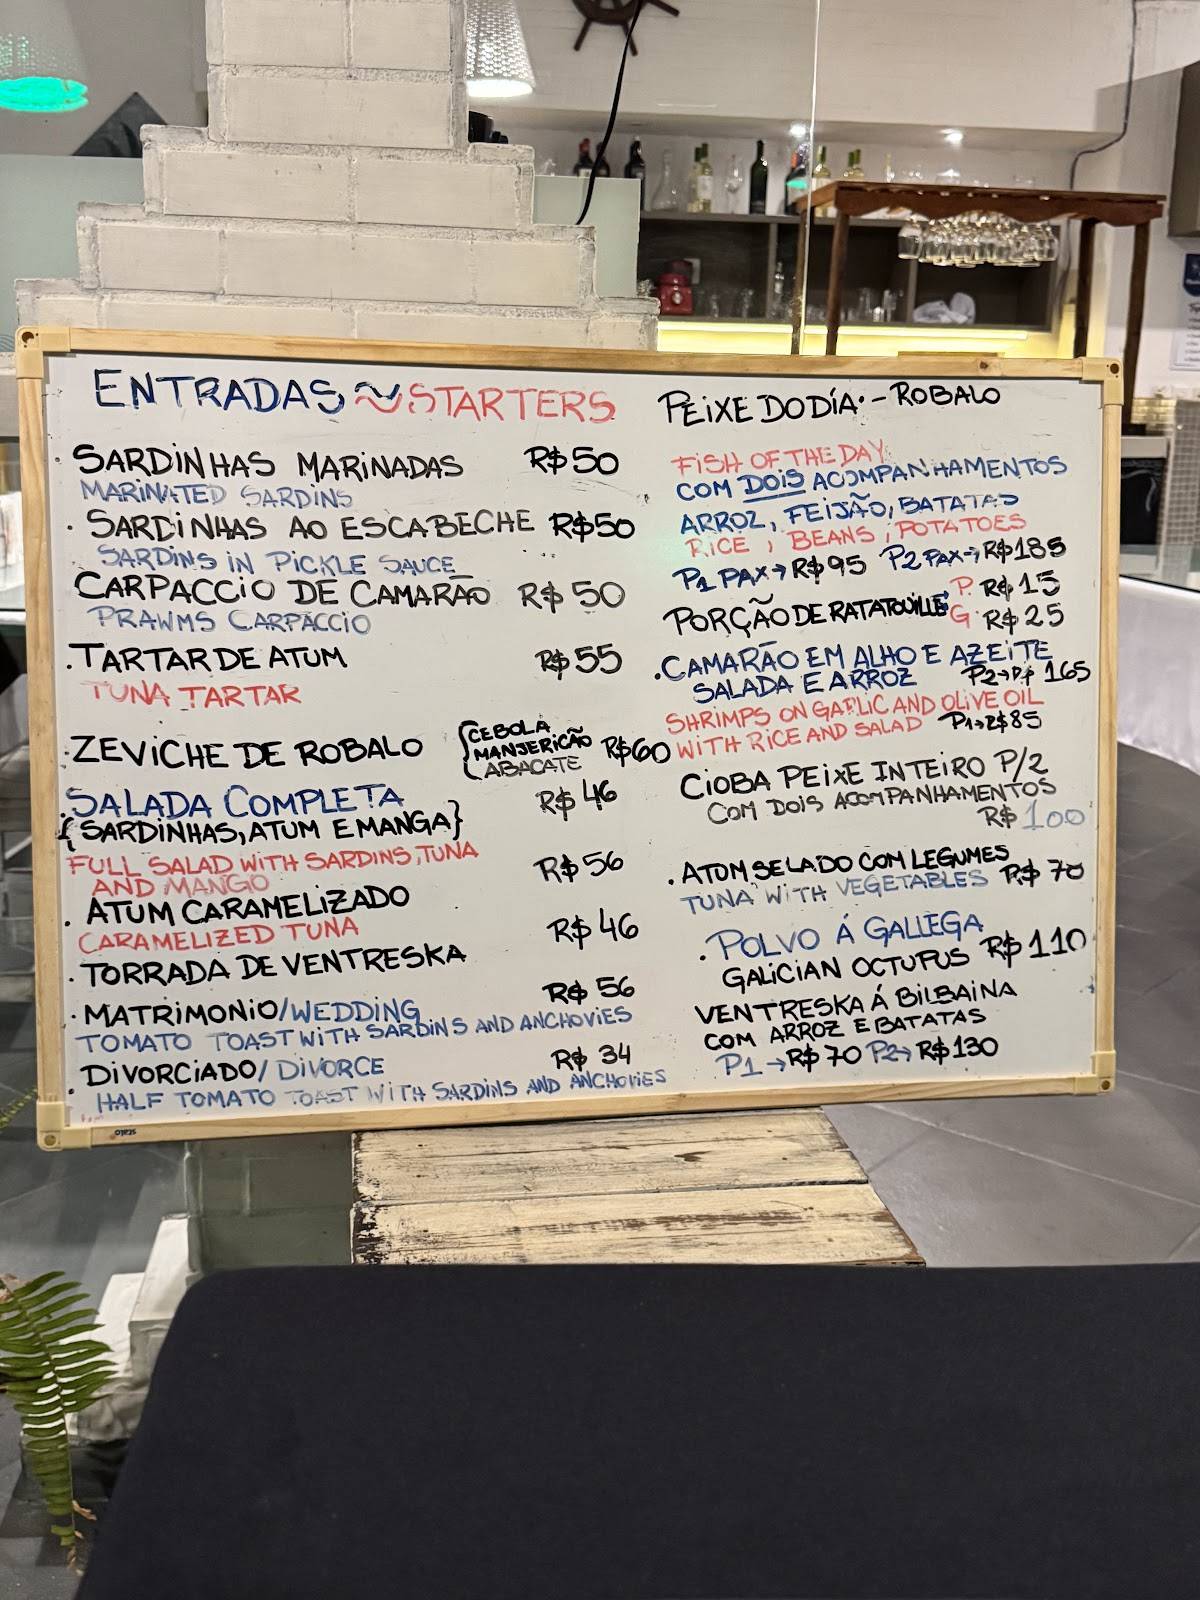 ENTRADAS ~ STARTERS
· SARDINHAS MARINADAS R$50
MARINATED SARDINS
· SARDINHAS AO ESCABECHE R$50
SARDINS IN PICKLE SAUCE
CARPACCIO DE CAMARÃO R$50
PRAWMS CARPACCIO
· TARTAR DE ATUM R$55
TUNA TARTAR
· ZEVICHE DE ROBALO { CEBOLA R$60
MANJERICÃO
ABACATE
· SALADA COMPLETA R$46
{SARDINHAS, ATUM E MANGA}
FULL SALAD WITH SARDINS, TUNA
AND MANGO R$56
· ATUM CARAMELIZADO
CARAMELIZED TUNA R$46
· TORRADA DE VENTRESKA
R$56
· MATRIMONIO/WEDDING
TOMATO TOAST WITH SARDINS AND ANCHOVIES
· DIVORCIADO/DIVORCE R$34
HALF TOMATO TOAST WITH SARDINS AND ANCHOVIES
stalo
PEIXE DO DÍA · - ROBALO
FISH OF THE DAY
COM DOIS ACOMPANHAMENTOS
ARROZ, FEIJÃO, BATATAS
RICE, BEANS, POTATOES
P1 PAX → R$95 P2 PAX → R$185
PORÇÃO DE RATATOUILLE P. R$15
G R$25
· CAMARÃO EM ALHO E AZEITE
SALADA E ARROZ P2 → R$ 165
SHRIMPS ON GARLIC AND OLIVE OIL
WITH RICE AND SALAD P1 → R$85
CIOBA PEIXE INTEIRO P/2
COM DOIS ACOMPANHAMENTOS
R$100
· ATUM SELADO COM LEGUMES
TUNA WITH VEGETABLES R$ 70
· POLVO Á GALLEGA
GALICIAN OCTUPUS R$110
VENTRESKA Á BILBAINA
COM ARROZ E BATATAS
P1 → R$70 P2 → R$130